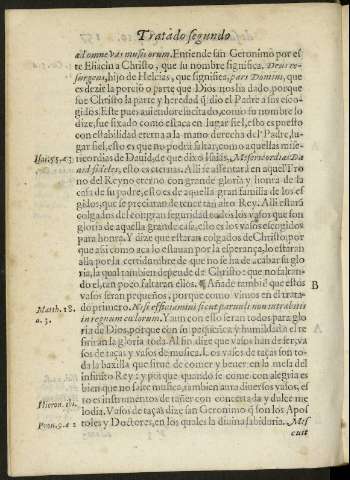 Tratado segundo
ad omne vas musicorum. Entiende san Geronimo por es
te Eliacin a Christo, que su nombre significa, Deus re-
surgens, hijo de Helcias, que significa, pars Domini, que
es dezir la porciō o parte que Dios nos ha dado, porque
fue Christo la parte y heredad q̃ dio el Padre a sus esco-
gidos. Este pues auiendo resucitado, como su nombre lo
dize, fue fixado como estaca en lugar fiel, esto es puesto
con estabilidad eterna a la mano derecha del Padre, lu-
gar fiel, esto es que no podrà faltar, como aquellas mise-
Isai.55.a.3. ricordias de Dauid, de que dixo Isaias, Misericordias Da
uid fideles, esto es eternas. Alli se assentarà en aquel Tro
no del Reyno eterno con grande gloria y honra de la
casa de su padre, esto es de aquella gran familia de los es
cogidos, que se preciaran de tener tan alto Rey. Alli estarà
colgados del con gran seguridad todos los vasos que son
gloria de aquella grande casa, esto es los vasos escogidos
para honra. Y dize que estaran colgados de Christo, por
que assi como acà lo estauan por la esperança, lo estaràn
alla por la certidumbre de que no se ha de acabar su glo
ria, la qual tambien depende de Christo: que no faltan-
do el, tan poco faltaràn ellos. ¶ Añade tambiē que estos
B
vasos seran pequeños, porque como vimos en el trata-
Matth. 18. a. 3.
do primero. Nisi efficiamini sicut paruuli non intrabitis
in regnum cælorum. Y aun con esso seràn todos para glo
ria de Dios, porque con su pequeñez y humildad el re
firiràn la gloria toda. Al fin dize que vasos han de ser, va
sos de taças y vasos de musica. Los vasos de taças son to-
da la baxilla que sirue de comer y beuer en la mesa del
infinito Rey: y porque quando se come con alegria es
bien que no falte musica, tambien aura diuersos vasos, es
to es instrumentos de tañer con concertada y dulce me
Hieron. ibi. lodia. Vasos de taças dize san Geronimo q̃ son los Apos
Prou. 9. a. 2 toles y Doctores, en los quales la diuina sabiduria. Mis
cuit